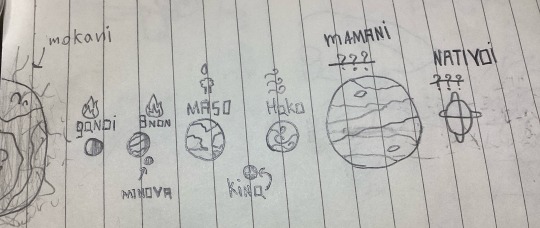 mokani
gandi
BNON
MINOVA
MASO
Hako
Kina
MAMANI
???
NATIVOI
???